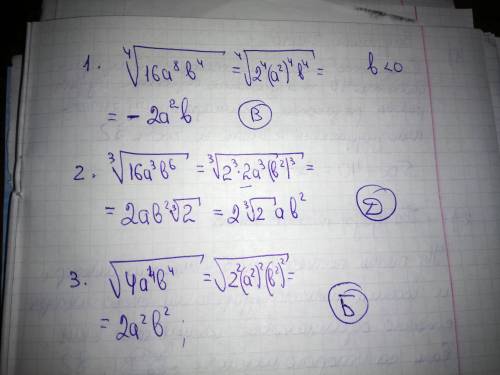 1. ⁴√16a⁸b⁴ = ⁴√2⁴(a²)⁴b⁴ = b<0
= - 2a²b В
2. ³√16a³b⁶ = ³√2³·2a³(b²)³ =
= 2ab² ³√2 = 2 ³√2 ab² Д
3. √4a⁴b⁴ = √2²(a²)²(b²)² =
= 2a²b² ; Б